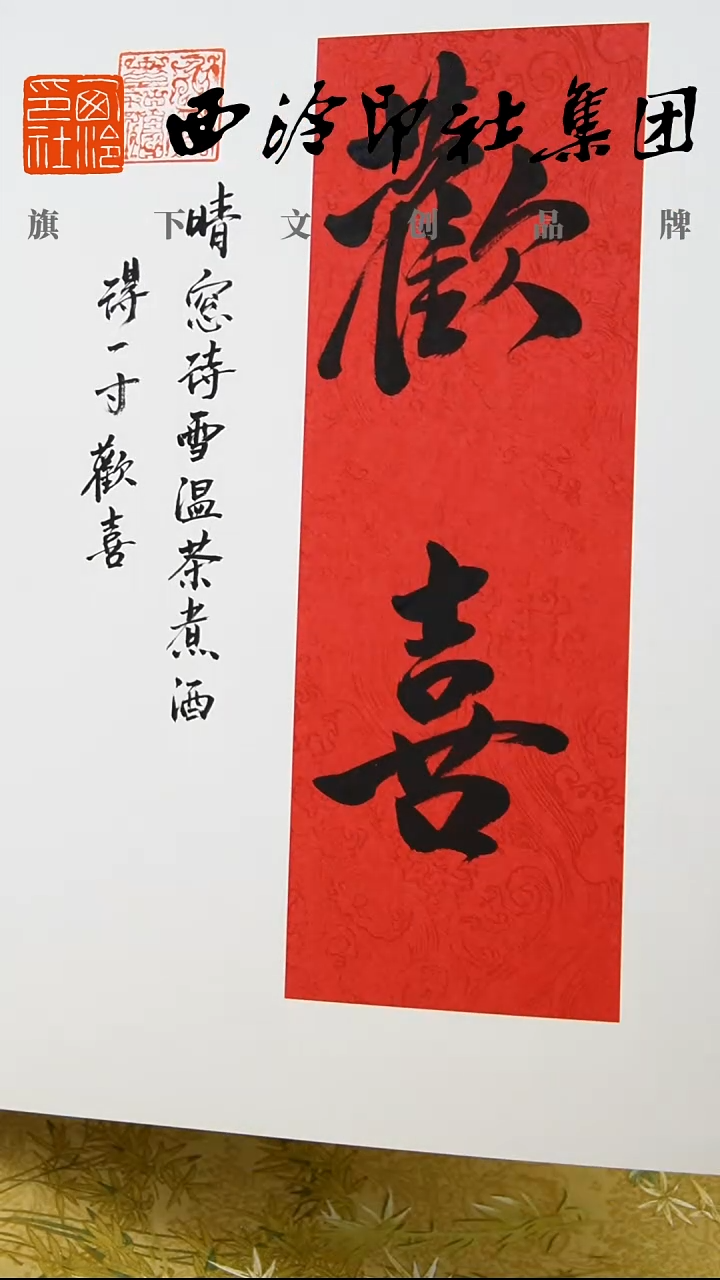 西泠印社
西泠印社集团
旗下文创品牌
歡喜
晴窓待雪温茶煮酒
得一寸歡喜